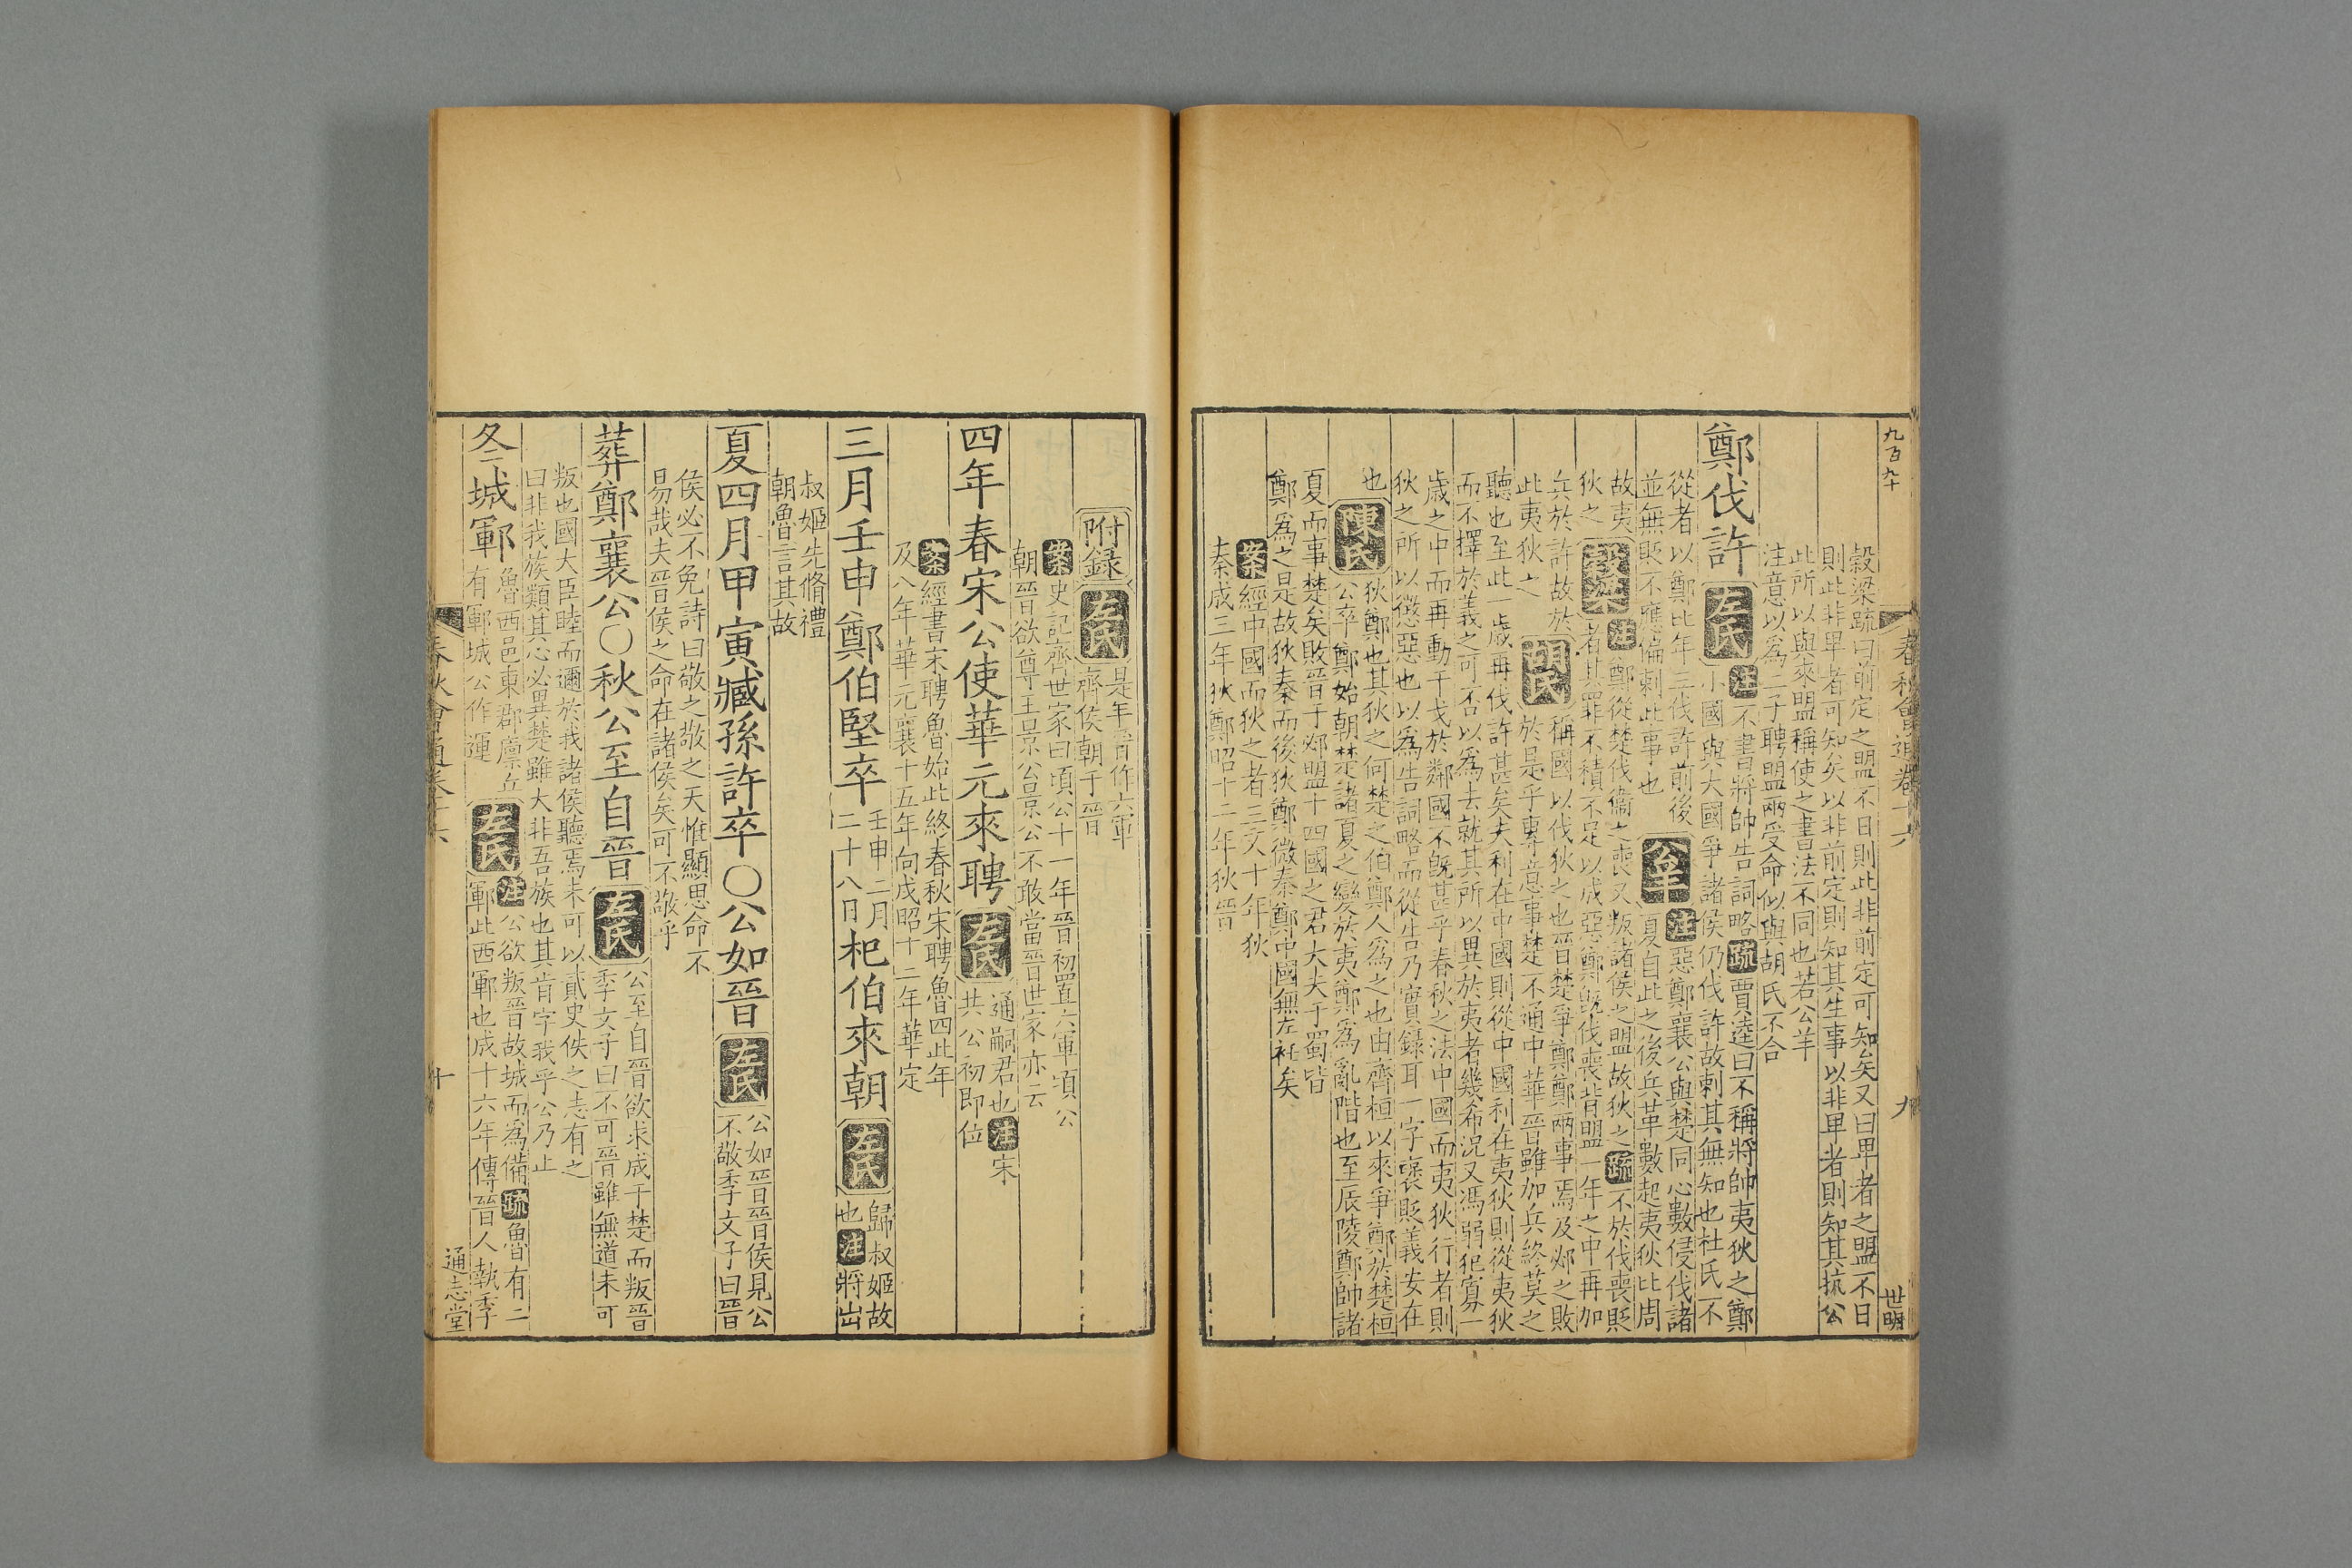 九百九十
春秋會通卷十六 九 世明
穀梁疏曰前定之盟不日則此非前定可知矣又曰卑者之盟不日
則此非卑者可知矣以非前定則知其生事以非卑者則知其抗公
此所以與來盟稱使之書法不同也若公羊
注意以爲二子聘盟兩受命似與胡氏不合
鄭伐許 左氏 注 不書將帥告詞略 疏 賈逵曰不稱將帥夷狄之鄭
小國與大國爭諸侯仍伐許故刺其無知也杜氏不
從者以鄭比年三伐許前後
並無貶不應偏刺此事也 公羊 注 惡鄭襄公與楚同心數侵伐諸
夏自此之後兵革數起夷狄比周
故夷
狄之 穀梁 注 鄭從楚伐衞之喪又叛諸侯之盟故狄之 疏 不於伐喪貶
者其罪不積不足以成惡鄭旣伐喪背盟一年之中再加
兵於許故於
此夷狄之 胡氏 稱國以伐狄之也晉楚爭鄭鄭兩事焉及邲之敗
於是乎專意事楚不通中華晉雖加兵終莫之
聽也至此一歲再伐許甚矣夫利在中國則從中國利在夷狄則從夷狄
而不擇於義之可否以爲去就其所以異於夷者幾希況又馮弱犯寡一
歲之中而再動干戈於鄰國不旣甚乎春秋之法中國而夷狄行者則
狄之所以懲惡也以爲告詞略而從告乃實錄耳一字褒貶義安在
也 陳氏 狄鄭也其狄之何楚之伯鄭人爲之也由齊桓以來爭鄭於楚桓
公卒鄭始朝楚諸夏之變於夷鄭爲亂階也至辰陵鄭帥諸
夏而事楚矣敗晉于邲盟十四國之君大夫于蜀皆
鄭爲之是故狄秦而後狄鄭微秦鄭中國無左衽矣
案 經中國而狄之者三文十年狄
秦成三年狄鄭昭十二年狄晉
附錄 左氏 是年晉作六軍
齊侯朝于晉
案 史記齊世家曰頃公十一年晉初置六軍頃公
朝晉欲尊王景公景公不敢當晉世家亦云
四年春宋公使華元來聘 左氏 通嗣君也 注 宋
共公初即位
案 經書宋聘魯始此終春秋宋聘魯四此年
及八年華元襄十五年向戌昭十二年華定
三月壬申鄭伯堅卒 壬申二月
二十八日 杞伯來朝 左氏 歸叔姬故
也 注 將出
叔姬先脩禮
朝魯言其故
夏四月甲寅臧孫許卒〇公如晉 左氏 公如晉晉侯見公
不敬季文子曰晉
侯必不免詩曰敬之敬之天惟顯思命不
易哉夫晉侯之命在諸侯矣可不敬乎
葬鄭襄公〇秋公至自晉 左氏 公至自晉欲求成于楚而叛晉
季文子曰不可晉雖無道未可
叛也國大臣睦而邇於我諸侯聽焉未可以貳史佚之志有之
曰非我族類其心必異楚雖大非吾族也其肯字我乎公乃止
冬城鄆 魯西邑東郡廩丘
有鄆城公作運 左氏 注 公欲叛晉故城而爲備 疏 魯有二
鄆此西鄆也成十六年傳晉人執季
春秋會通卷十六 十 通志堂